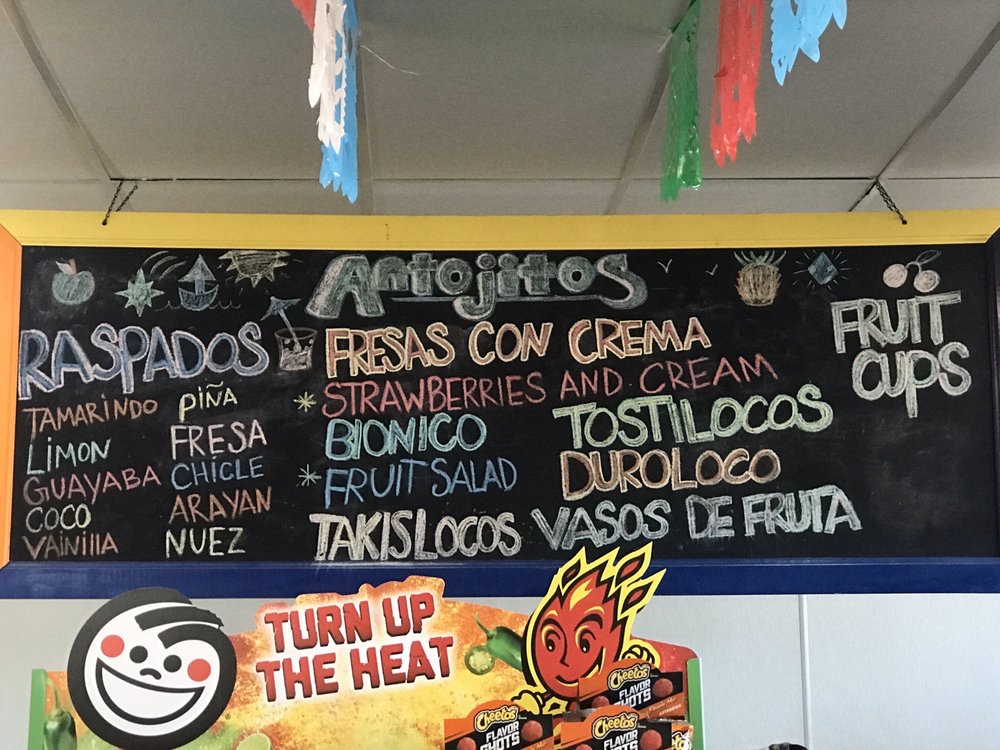 Antojitos
RASPADOS
TAMARINDO
LIMON
GUAYABA
COCO
VAINIllA
PIÑA
FRESA
CHICLE
ARAYAN
NUEZ
FRESAS CON CREMA
* STRAWBERRIES AND CREAM
BIONICO
* FRUIT SALAD
TAKISLOCOS
TOSTILOCOS
DUROLOCO
VASOS DE FRUTA
FRUIT
CUPS
TURN UP
THE HEAT
Cheetos
FLAVOR
SHOTS
Cheetos
FLAVOR
SHOTS
Cheetos
FLAVOR